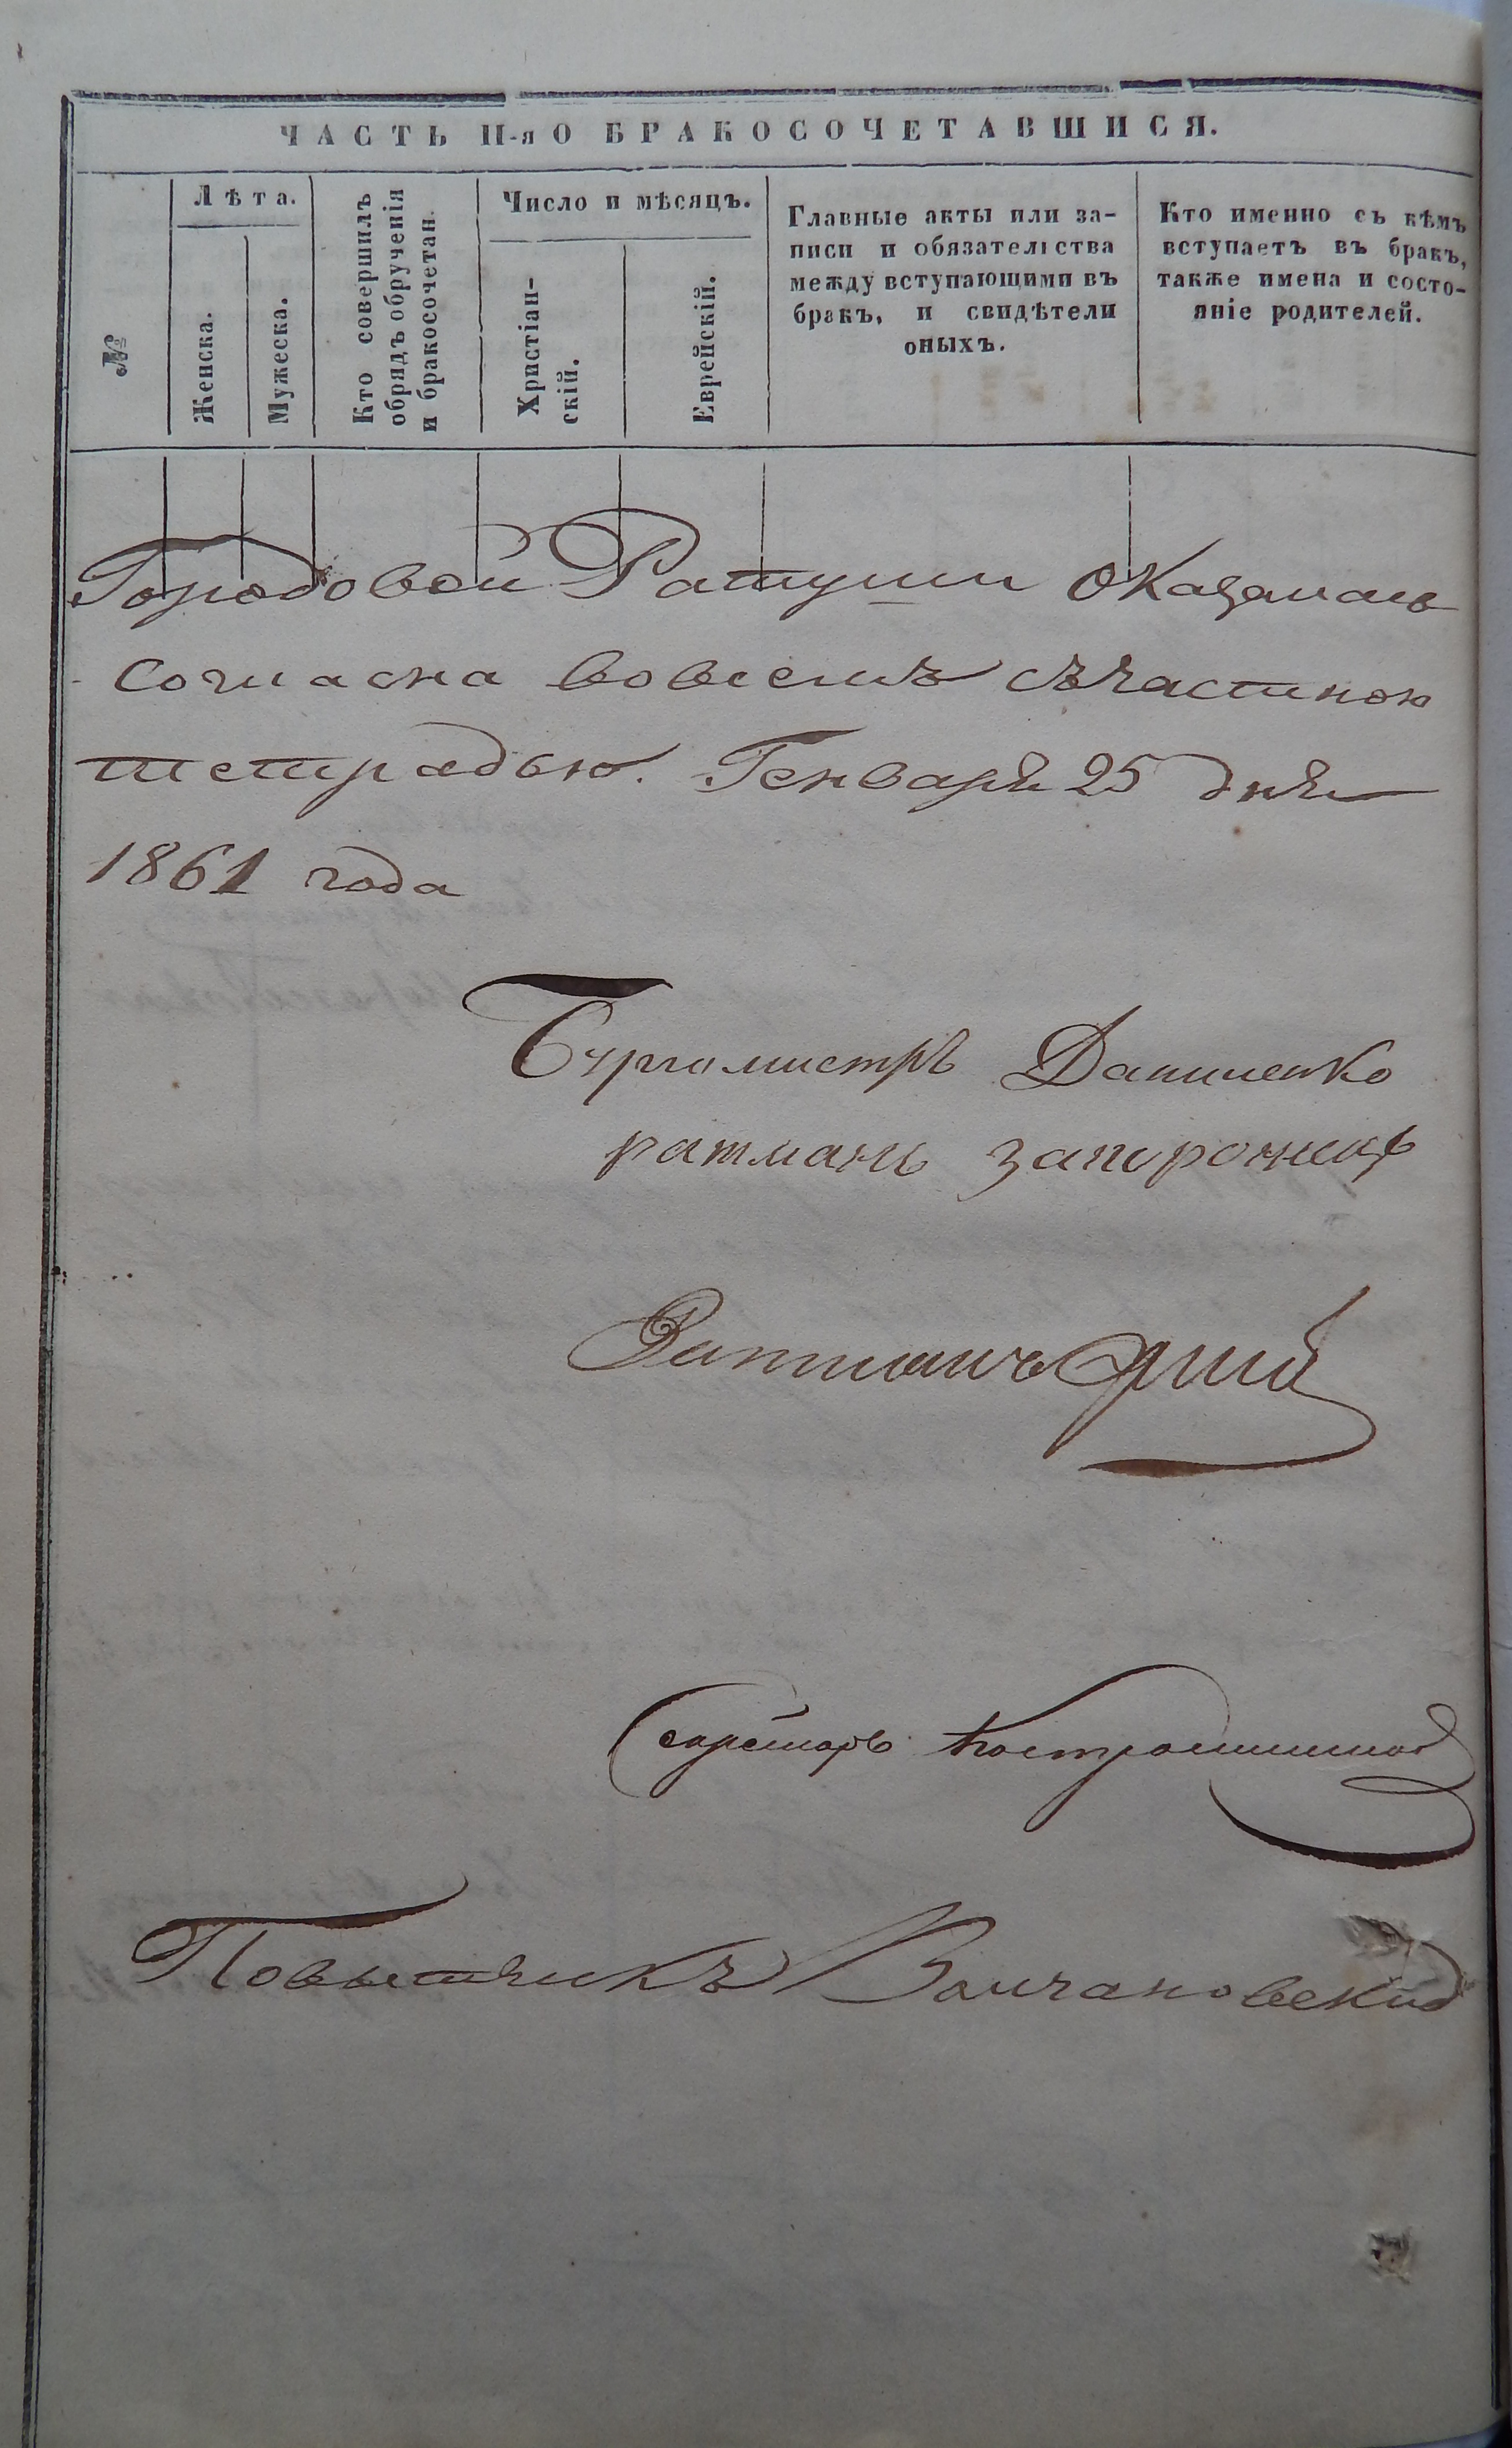 ЧАСТЬ II-я О БРАКОСОЧЕТАВШИСЯ.
№
Лѣта.
Женска.
Мужеска.
Кто совершилъ
обрядъ обрученія
и бракосочетан.
Число и мѣсяцъ.
Христіан-
скій.
Еврейскій.
Главные акты или за-
писи и обязательства
между вступающими въ
бракъ, и свидѣтели
оныхъ.
Кто именно съ кѣмъ
вступаетъ въ бракъ,
также имена и состо-
яніе родителей.
Городовой Ратуши оказалась
согласна вовсемъ съчастною
тетрадью. Генваря 25 дня
1861 года
Бургомистръ Даниленко
ратманъ запорожецъ
Ратманъ
Секретарь
Повытчикъ Волчановскій